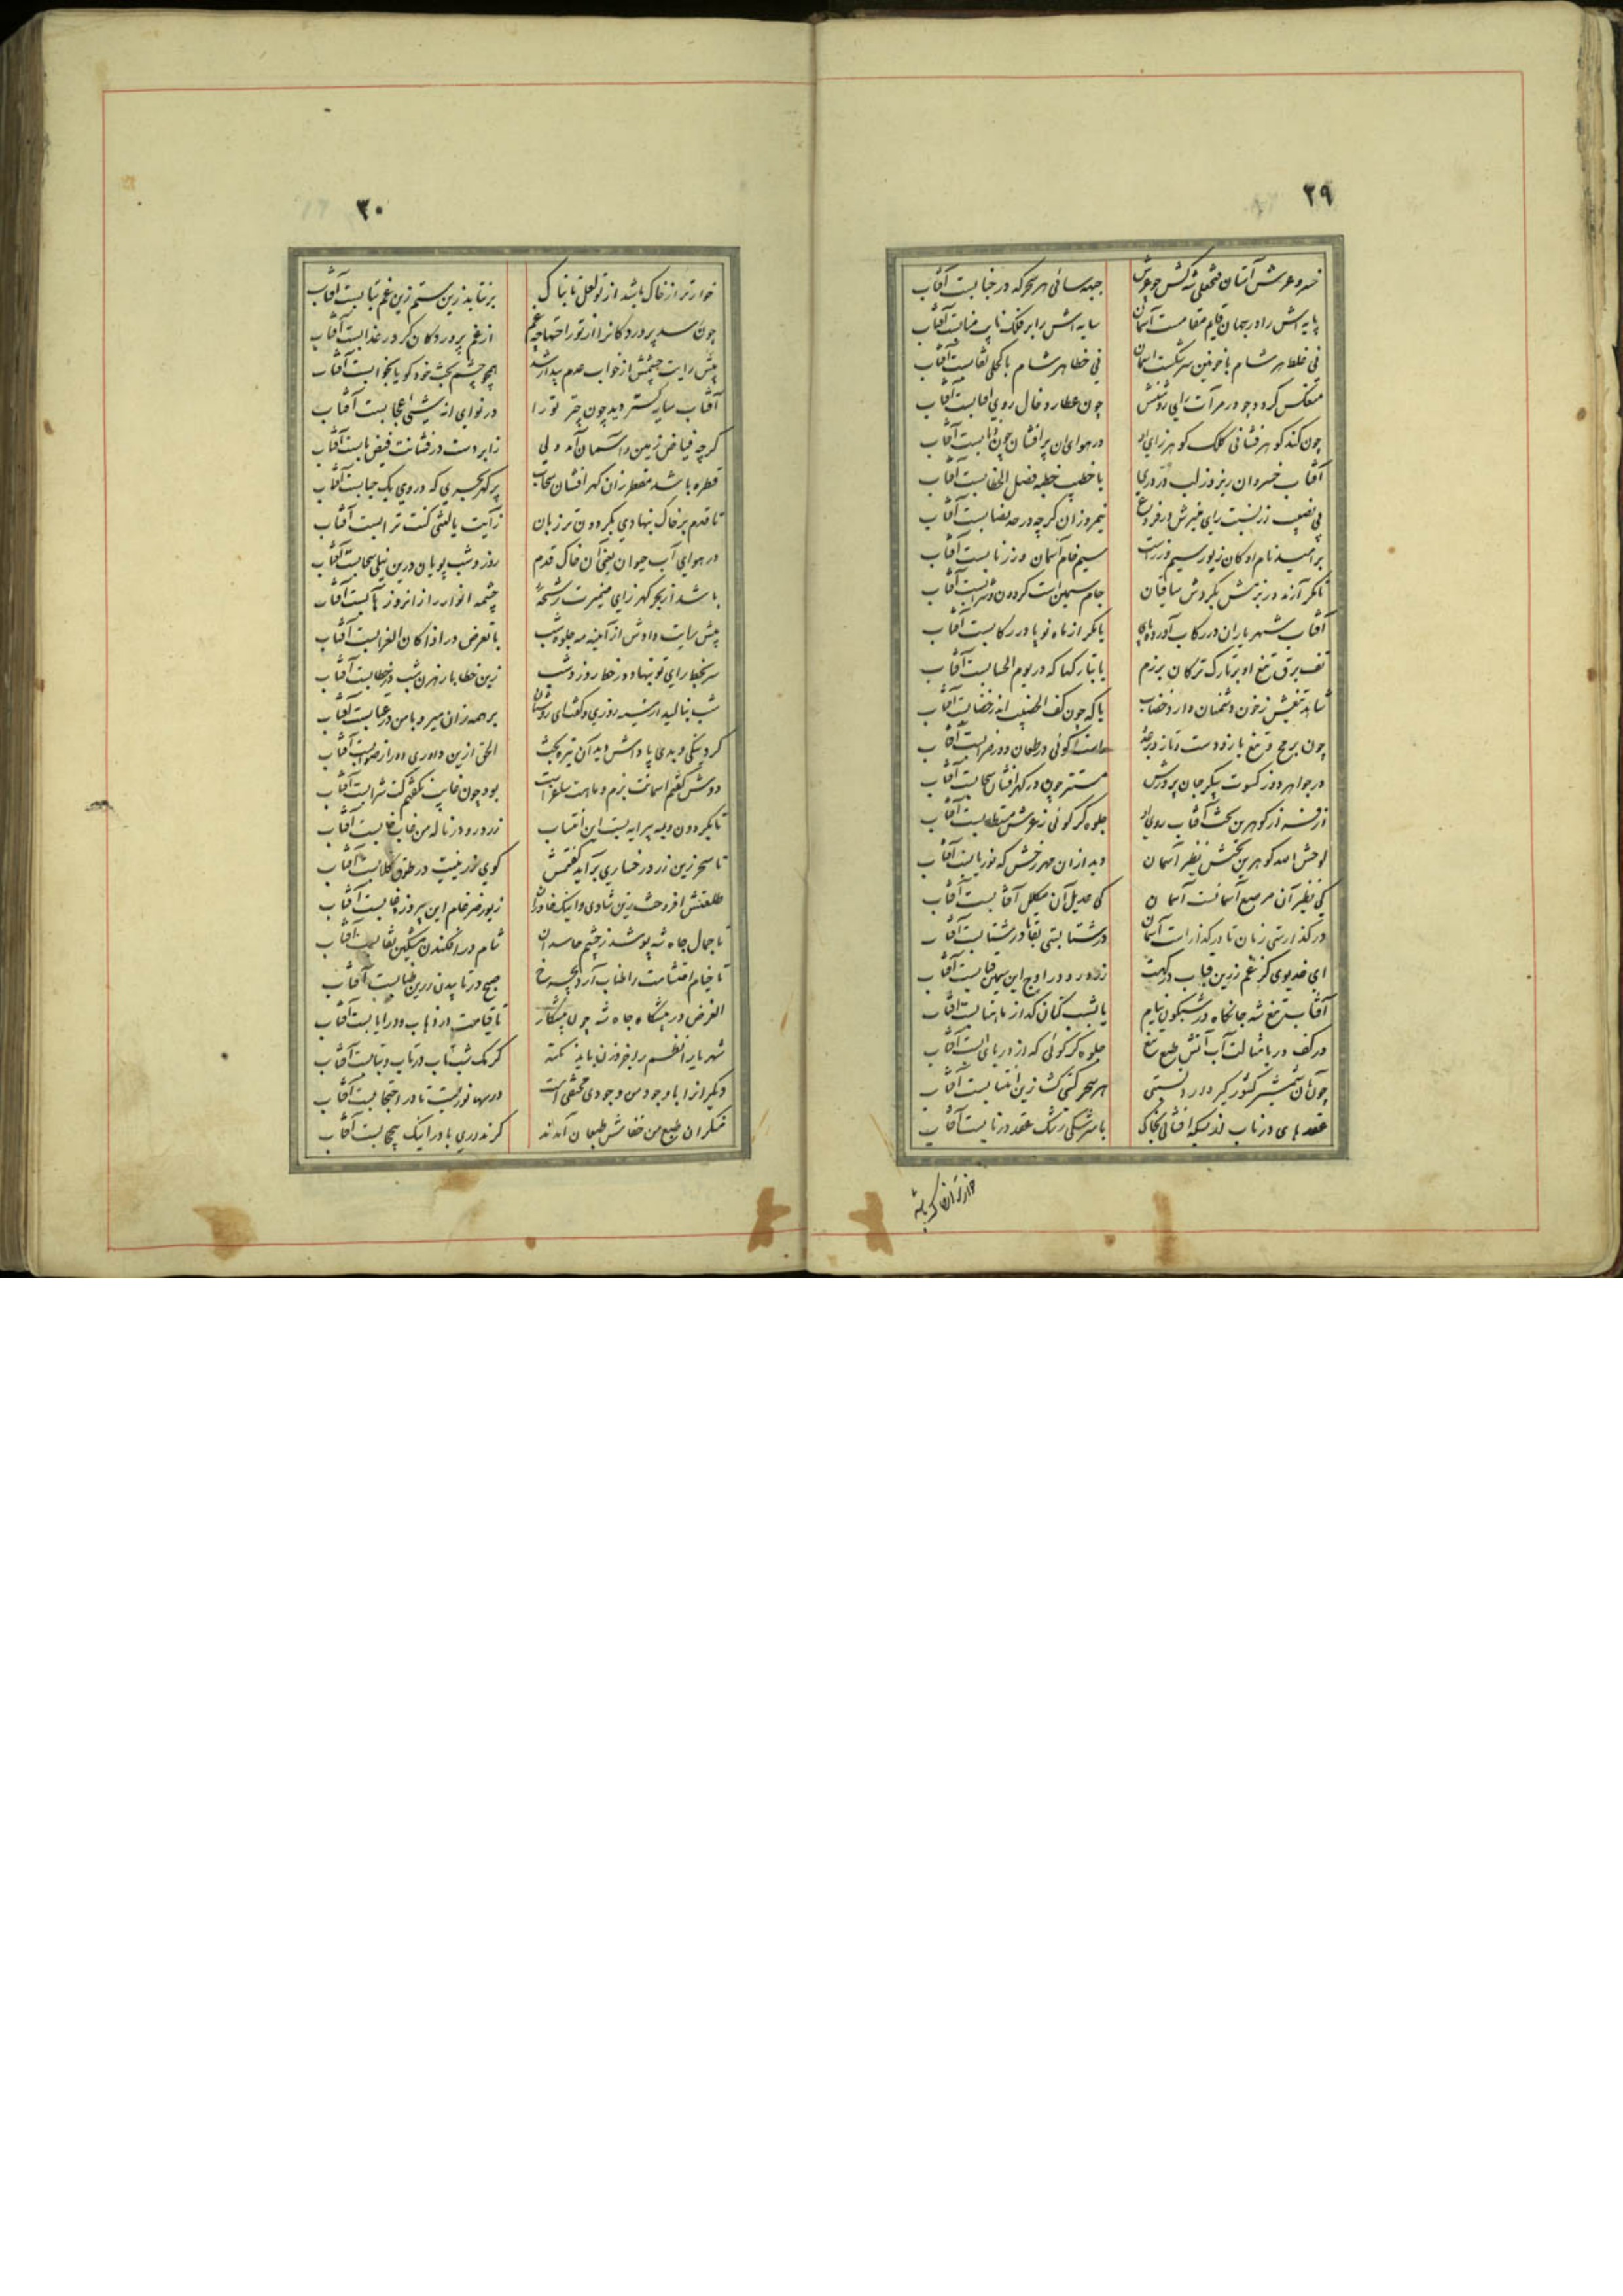 ۲۹
خسرو عرش آستان فتحعلی شه کش چو عرش جبهه سائی هر سحر که در جنابست آفتاب
پایه اش را در جهان قایم مقامست آسمان سایه اش را بر فلک نایب منابست آفتاب
نی غلط هر شام با خونین سرشکست آسمان نی خطا هر شام با کحلی نقابست آفتاب
منعکس گردد چو در مرآت رای روشنش چون عطارد خال روی
چون کند گوهر فشانی کلک گوهر زای او در هوای آن پر افشان چون ذبابست آفتاب
آفتاب خسروان ریزد ز لب در دری با خطیب خطبه فصل الخطابست آفتاب
بی نصیب زرنیست رای منیرش در فروغ نیمروزان گرچه در حد نصابست آفتاب
بر امید نام او کان زیور سیم و زر است سیم خام آسمان و زر نابست آفتاب
تا مگر آرند در بزمش بگردش ساقیان جام سیمین است گردون و شرابست آفتاب
آفتاب شهریاران در رکاب آورده پای یا مگر از ماه نو پا در رکابست آفتاب
تف برق تیغ او بر تارک ترکان برزم یا بتارکها که در یوم الحسابست آفتاب
شاهد تیغش ز خون دشمنان دارد خضاب یا که چون کف الخضیب اندر خضابست آفتاب
چون برمح و تیغ یازد دست و تازد در
در جواهر دوز کسوت پیکر جان پرورش مستتر چون در گهر افشان سحابست آفتاب
از فراز گوهرین تخت آفتاب روی او جلوه گر گوئی ز عرش مستطابست آفتاب
لوحش الله گوهرین تختش نظیر آسمان دید از آن مهر رخش که نور یابست آفتاب
کی نظیر آن مرصع آسمانست آسمان کی عدیل آن مکلل آفتابست آفتاب
در گذارستی زمان تا در گذار است آسمان در شتابستی بقا تا در شتابست آفتاب
ای خدیوی کز غم زرین قباب درگهت زرد رود در اوج این سیمین قبابست آفتاب
آفتاب تیغ شه جانکاه در شبگون نیام یا بشب کتان گداز ماهتابست آفتاب
در کف دریا مثالت آب آتش طبع تیغ جلوه گر گوئی که از دریای آبست آفتاب
چون آن شمشیر کشور گیر دارد نسبتی هر سحر گیتی گشا زین انتسابست آفتاب
عقدهای در ناب از بسکه افشانی بخاک با سرشکی رشک عقد در نابست آفتاب
خوارتر از خاک باشد
۳۰
خوارتر از خاک باشد از تو لعل تابناک بر نتابد زین ستم زین غم بتابست آفتاب
چون رسد پرورد کانرا از تو راحتها چه غم از غم پرورد کان گر در عذابست آفتاب
پیش رایت چشمش از خواب عدم بیدار شد همچو چشم بخت خود گویا بخوابست آفتاب
آفتاب سایه گستر دید چون چتر تو را در نوای انه شیئی عجابست آفتاب
گرچه فیاض زمین و آسمان آمد ولی ز ابر دست درفشانت فیض یابست آفتاب
قطره باشد مقطر زان گهر افشان سحاب پر گهر بحری که در وی یک حبابست آفتاب
تا قدم بر خاک بنهادی بگردون تر زبان ز آیت یا لیتنی کنت ترابست آفتاب
در هوای آب حیوان یعنی آن خاک قدم روز و شب پویان درین نیلی سحابست آفتاب
باشد از بحر گهر زای ضمیرت رشحه چشمه انوار
پیش رایت دادش از آئینه مه جلوه شب با تعرض در اذا کان الغرابست آفتاب
سر بخط رای تو بنهاده در خط روز و شب زین خطا با رهزن شب در خطابست آفتاب
شب بنالید از سیه روزی و گفت ای روشنان بر همه زان میر و با من در عتابست آفتاب
کرد نیکی و بدی پاداش دید آن تیره بخت الحق ازین داوری دور از صوابست آفتاب
دوش گفتم آسمانت بزم و ماهت ساغر است بود چون غایب نگفتم کت شرابست آفتاب
تا بگردون
تا سحر زین زرد رخساری برآید گفتمش گوی زرنیست در طوق کلابست آفتاب
طلعتش افروخت زین شادی و اینک خاور از زیور زر خام این پیروزه
تا جمال جاه شه پوشد ز چشم حاسدان شام در افکندن مشکین نقابست آفتاب
تا خیام احتشامت را طناب آرد بچرخ صبح در تابیدن زرین طنابست آفتاب
الغرض در پیشگاه جاه شه چون پیشکار تا قیامت در ذهاب و در ایابست آفتاب
شهریارا نظم را بر خور زین باید نکته کرمک شبتاب در تاب و بتابست آفتاب
دیگر از را با وجود من وجودی مختفی است در سها نوریست تا در احتجابست آفتاب
منکران طبع من خفاش طبعان آمدند گر نداری باور اینک بی حجابست آفتاب